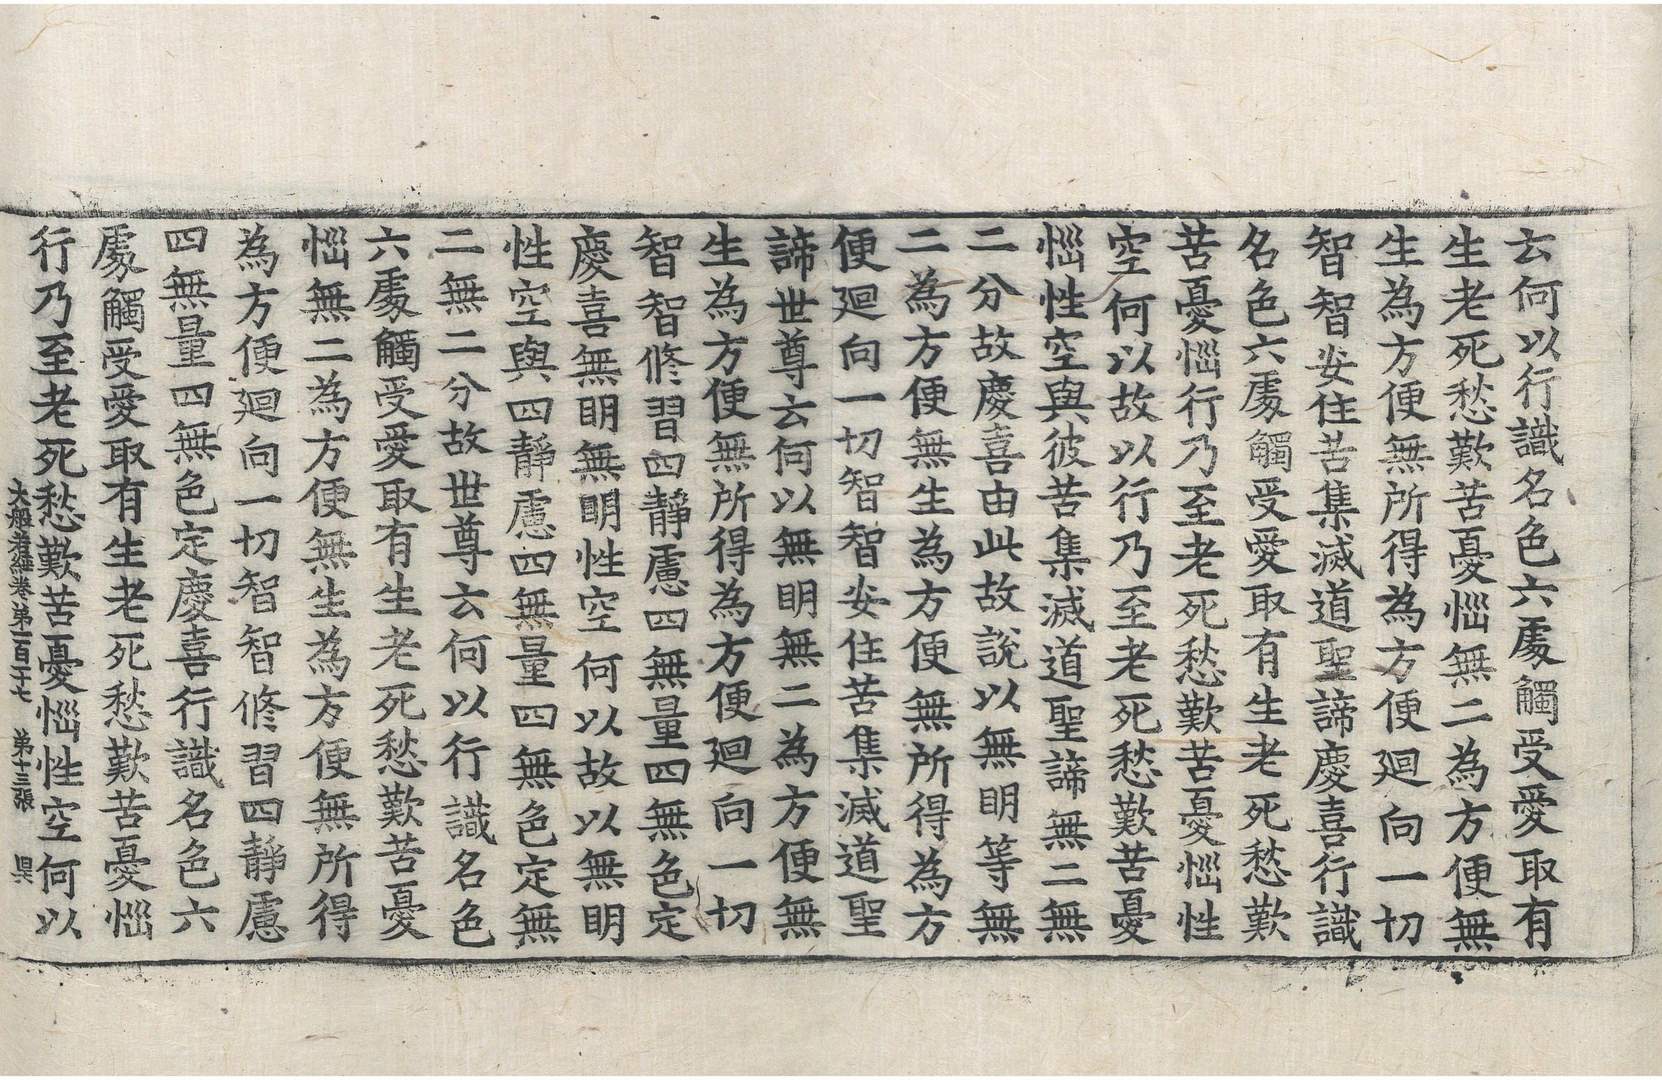 云何以行識名色六處觸受愛取有
生老死愁歎苦憂惱無二為方便無
生為方便無所得為方便迴向一切
智智安住苦集滅道聖諦慶喜行識
名色六處觸受愛取有生老死愁歎
苦憂惱行乃至老死愁歎苦憂惱性
空何以故以行乃至老死愁歎苦憂
惱性空與彼苦集滅道聖諦無二無
二分故慶喜由此故說以無明等無
二為方便無生為方便無所得為方
便迴向一切智智安住苦集滅道聖
諦世尊云何以無明無二為方便無
生為方便無所得為方便迴向一切
智智修習四靜慮四無量四無色定
慶喜無明無明性空何以故以無明
性空與四靜慮四無量四無色定無
二無二分故世尊云何以行識名色
六處觸受愛取有生老死愁歎苦憂
惱無二為方便無生為方便無所得
為方便迴向一切智智修習四靜慮
四無量四無色定慶喜行識名色六
處觸受愛取有生老死愁歎苦憂惱
行乃至老死愁歎苦憂惱性空何以
大般若經卷第一百二十七　第十三張　昃